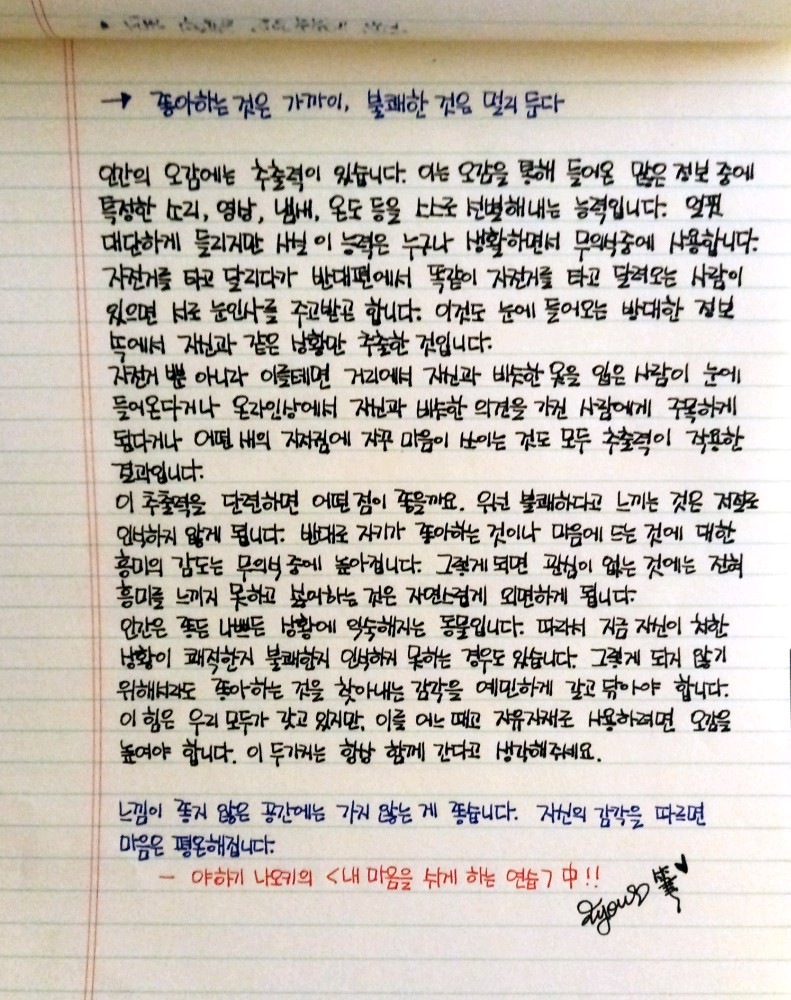 → 좋아하는 것은 가까이, 불쾌한 것은 멀리 둔다
인간의 오감에는 추출력이 있습니다. 이는 오감을 통해 들어온 많은 정보 중에
특정한 소리, 영상, 냄새, 온도 등을 스스로 선별해내는 능력입니다. 얼핏
대단하게 들리지만 사실 이 능력은 누구나 생활하면서 무의식중에 사용합니다.
자전거를 타고 달리다가 반대편에서 똑같이 자전거를 타고 달려오는 사람이
있으면 서로 눈인사를 주고받곤 합니다. 이것도 눈에 들어오는 방대한 정보
속에서 자신과 같은 상황만 추출한 것입니다.
자전거 뿐 아니라 이를테면 거리에서 자신과 비슷한 옷을 입은 사람이 눈에
들어온다거나 온라인상에서 자신과 비슷한 의견을 가진 사람에게 주목하게
된다거나 어떤 새의 지저귐에 자꾸 마음이 쓰이는 것도 모두 추출력이 작용한
결과입니다.
이 추출력을 단련하면 어떤 점이 좋을까요. 우선 불쾌하다고 느끼는 것은 저절로
인식하지 않게 됩니다. 반대로 자기가 좋아하는 것이나 마음에 드는 것에 대한
흥미의 감도는 무의식 중에 높아집니다. 그렇게 되면 관심이 없는 것에는 전혀
흥미를 느끼지 못하고 싫어하는 것은 자연스럽게 외면하게 됩니다.
인간은 좋든 나쁘든 상황에 익숙해지는 동물입니다. 따라서 지금 자신이 처한
상황이 쾌적한지 불쾌한지 인식하지 못하는 경우도 있습니다. 그렇게 되지 않기
위해서라도 좋아하는 것을 찾아내는 감각을 예민하게 갈고 닦아야 합니다.
이 힘은 우리 모두가 갖고 있지만, 이를 어느 때고 자유자재로 사용하려면 오감을
높여야 합니다. 이 두가지는 항상 함께 간다고 생각해주세요.
느낌이 좋지 않은 공간에는 가지 않는 게 좋습니다. 자신의 감각을 따르면
마음은 평온해집니다.
- 야하기 나오키의 <내 마음을 쉬게 하는 연습> 中!!